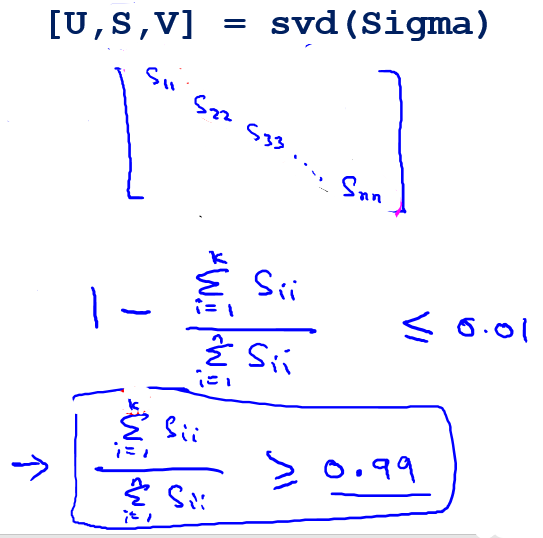 [U,S,V] = svd(Sigma)
S₁₁
S₂₂
S₃₃
⋱
Sₙₙ
1 - (∑ᵢ₌₁ᵏ Sᵢᵢ) / (∑ᵢ₌₁ⁿ Sᵢᵢ) ≤ 0.01
→ (∑ᵢ₌₁ᵏ Sᵢᵢ) / (∑ᵢ₌₁ⁿ Sᵢᵢ) ≥ 0.99